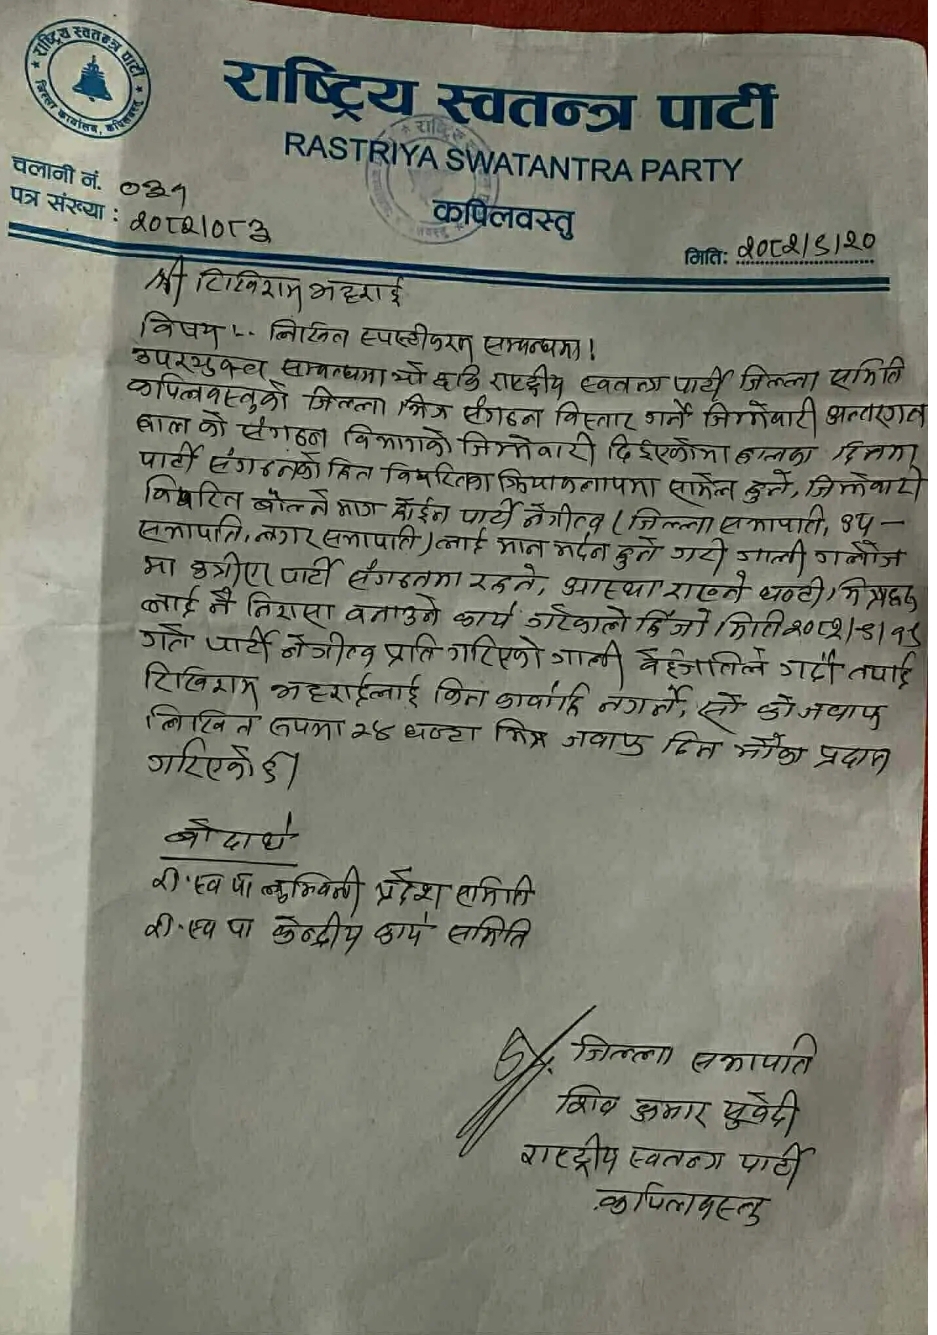 राष्ट्रिय स्वतन्त्र पार्टी
जिल्ला कार्यालय, कपिलवस्तु
राष्ट्रिय स्वतन्त्र पार्टी
RASTRIYA SWATANTRA PARTY
कपिलवस्तु
चलानी नं. ०३१
पत्र संख्या : २०८२/०८३
मिति: २०८२/९/२०
श्री टिखिराम भट्टराई
विषय :- लिखित स्पष्टीकरण सम्बन्धमा।
उपरयुक्त सम्बन्धमा राष्ट्रीय स्वतन्त्र पार्टी जिल्ला समिति
कपिलवस्तुको जिल्ला भित्र संगठन विस्तार गर्ने जिम्मेवारी अन्तरगत
संगठन विभागको जिम्मेवारी दिईएकोमा हालका दिनमा
पार्टी संगठनको हित विपरितका क्रियाकलापमा सामेल हुने, जिम्मेवारी
विपरित बोल्ने मात्र होईन पार्टी नेतृत्व (जिल्ला सभापति, उप-
सभापति, नगर सभापति) लाई मान मर्दन हुने गरी गाली गलौज
मा उत्रीए पार्टी संगठनमा रहने, आस्था राख्ने
लाई नै निरासा बनाउने कार्य गरेकाले हिजो मिति २०८२/९/१९
गते पार्टी नेतृत्व प्रति गरिएको गाली बेईजतिले गर्दा तपाई
टिखिराम भट्टराईलाई किन कार्वाहि नगर्ने, सो को जवाफ
लिखित रुपमा २४ घण्टा भित्र जवाफ दिन मौका प्रदान
गरिएको छ।
बोदार्थ
रा.स्व पा लुम्बिनी प्रदेश समिति
रा.स्व पा केन्द्रीय कार्य समिति
जिल्ला सभापति
शिव कुमार सुवेदी
राष्ट्रीय स्वतन्त्र पार्टी
कपिलवस्तु